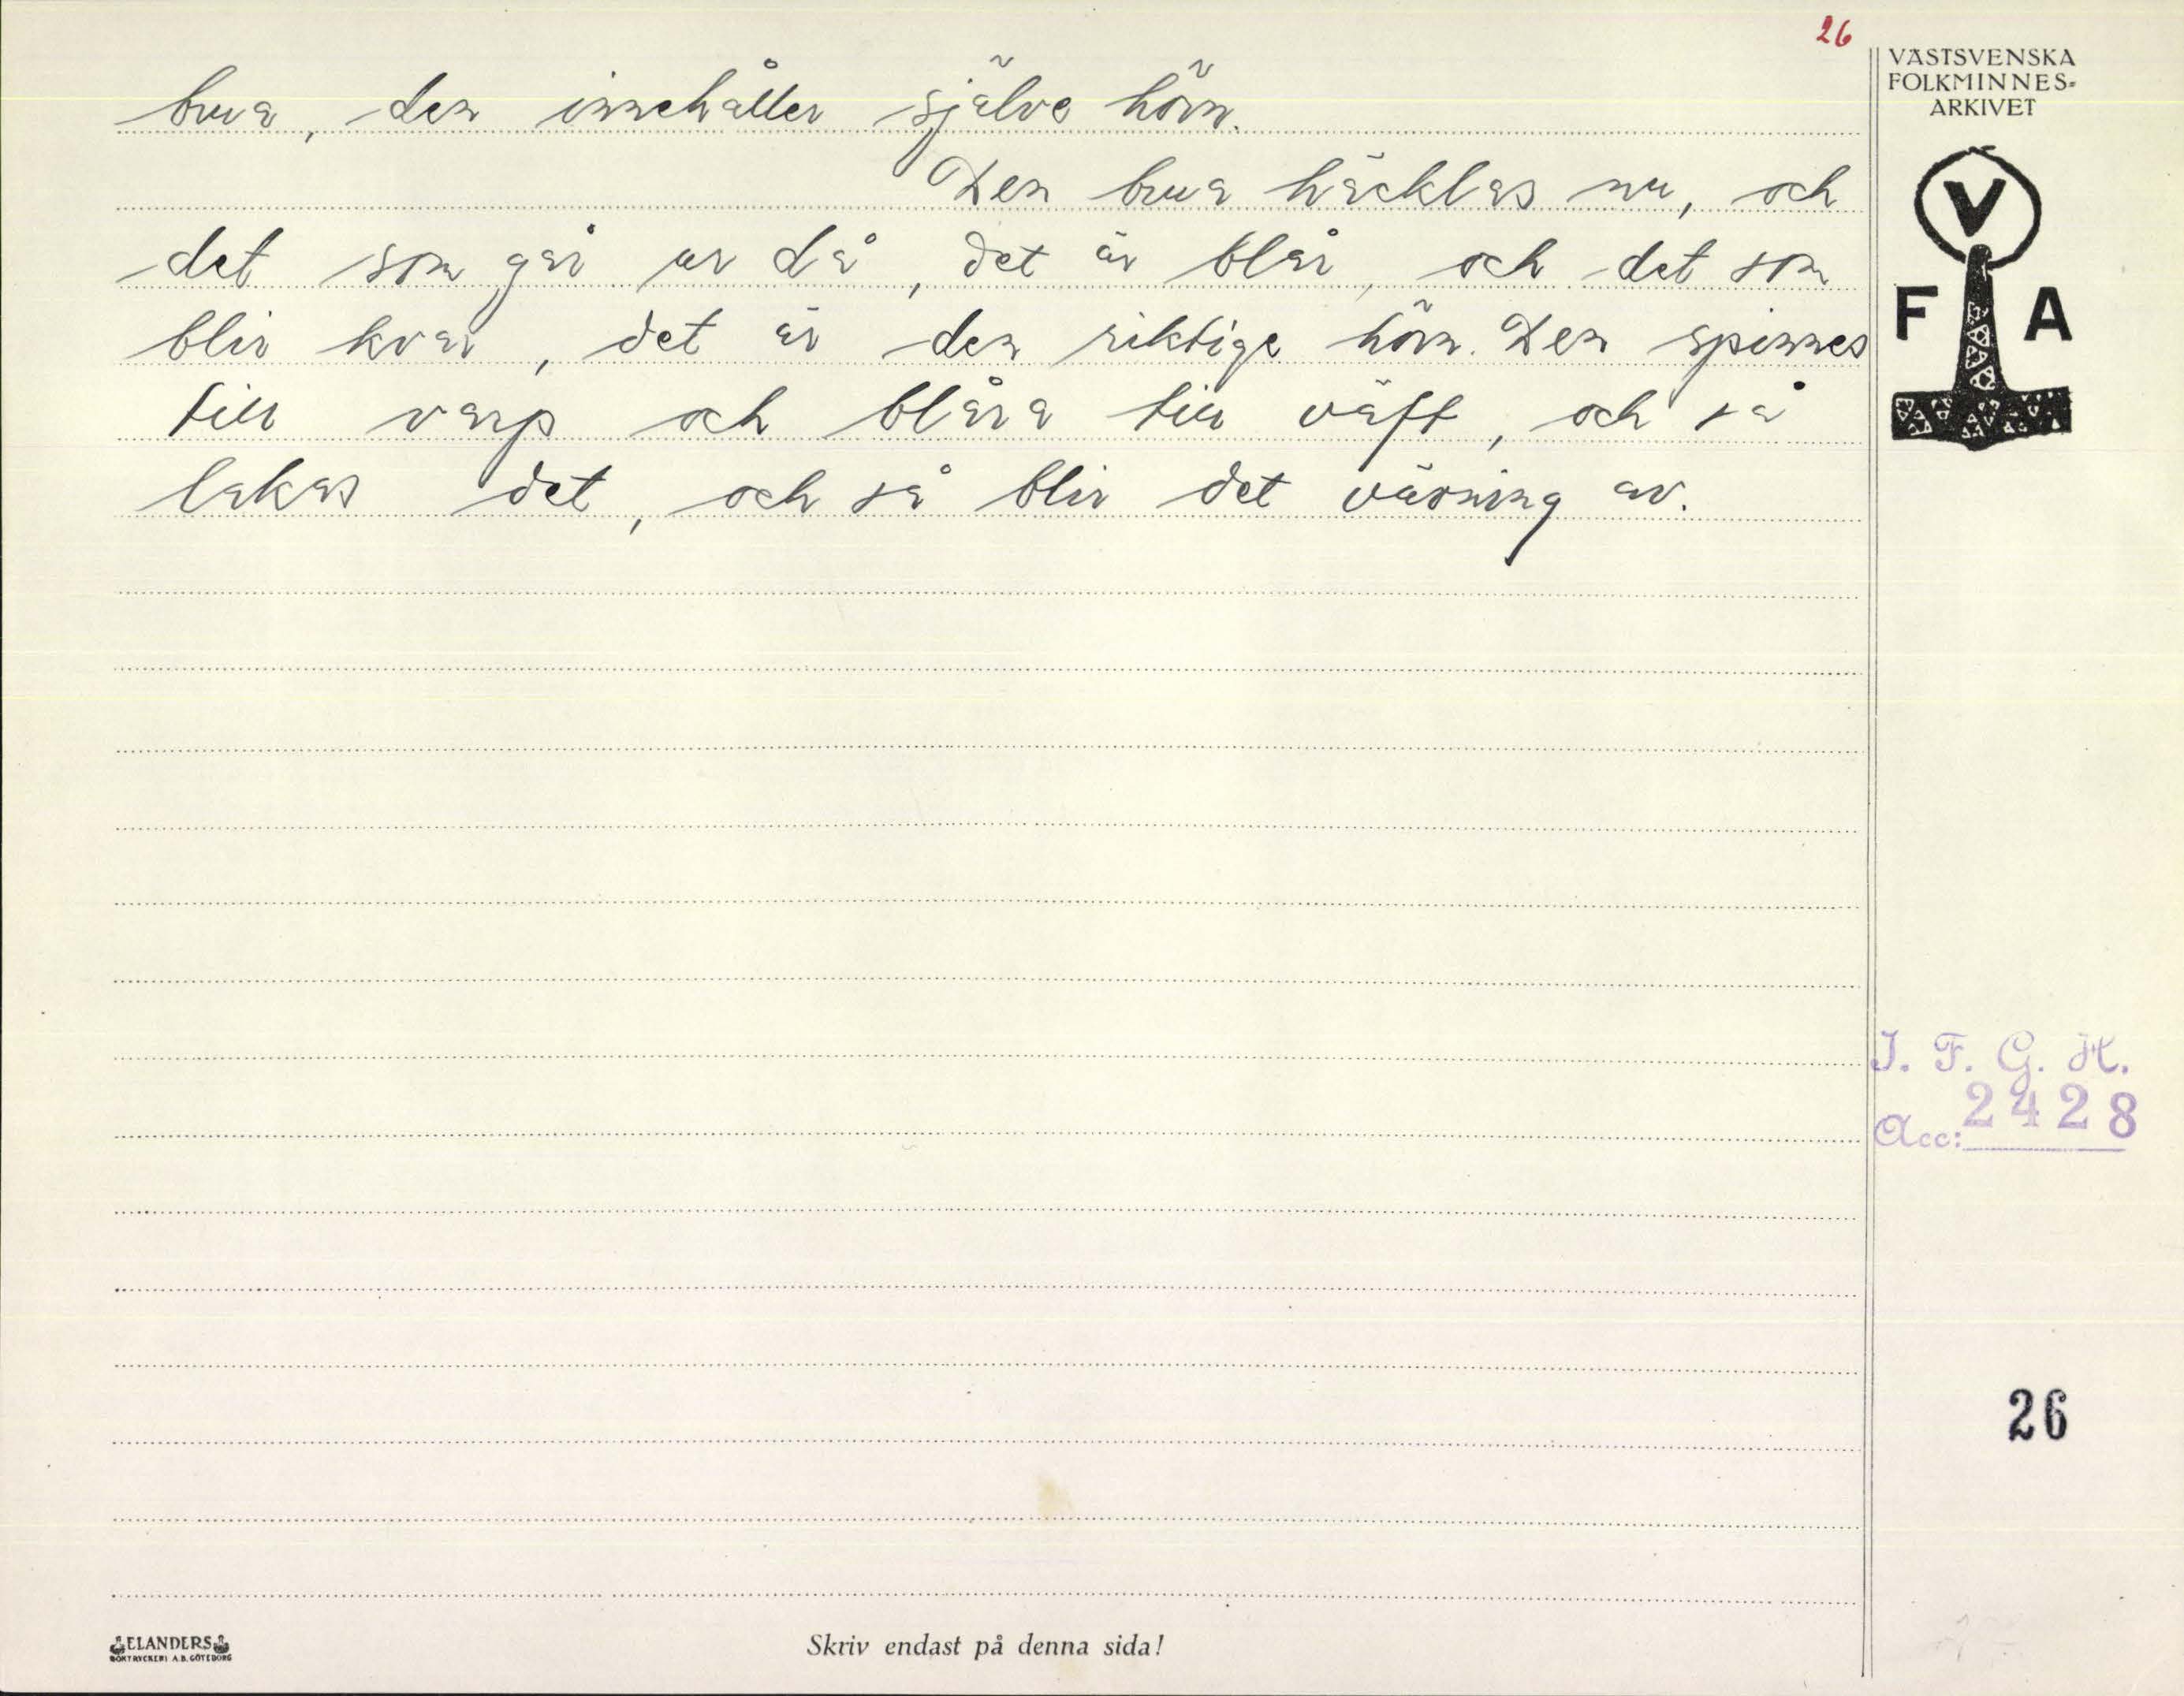 26
VÄSTSVENSKA
FOLKMINNES-
ARKIVET
V
F A
brua, den innehåller själve hörn.
Den brua häcklas nu, och
det som går ur då, det är blår, och det som
blir kvar, det är den riktige hörn. Den spinnes
till varp och blåra till väft, och så
lakas det, och så blir det vävning av.
I. F. G. H.
Acc: 2428
26
ELANDERS
BOKTRYCKERI A.B. GÖTEBORG
Skriv endast på denna sida!